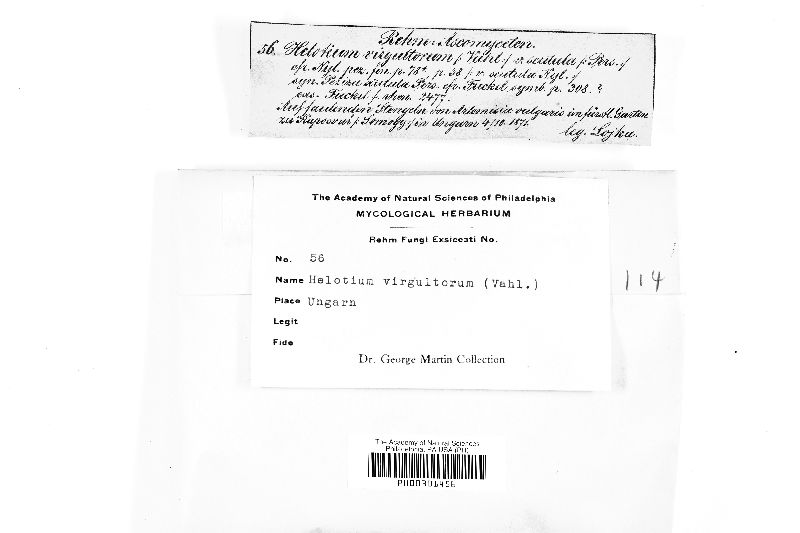 Rehm: Ascomyceten.
56. Helotium virgultorum (Vahl.) v. scutula (Pers.)
cfr. Nyl. pez. fen. p. 78, p. 38 (v. scutula Nyl.)
syn. Peziza scutula Pers. cfr. Fuckel symb. p. 308. ?
exs. Fuckel f. rhen. 2477.
Auf faulenden Stengeln von Artemisia vulgaris im fürstl. Garten
zu Kaposvár (Somogy) in Ungarn 4/10. 1871.
leg. Lojka.
The Academy of Natural Sciences of Philadelphia
MYCOLOGICAL HERBARIUM
Rehm Fungi Exsiccati No.
No. 56
Name Helotium virgultorum (Vahl.)
Place Ungarn
Legit
Fide
Dr. George Martin Collection
114
The Academy of Natural Sciences
Philadelphia, PA USA (PH)